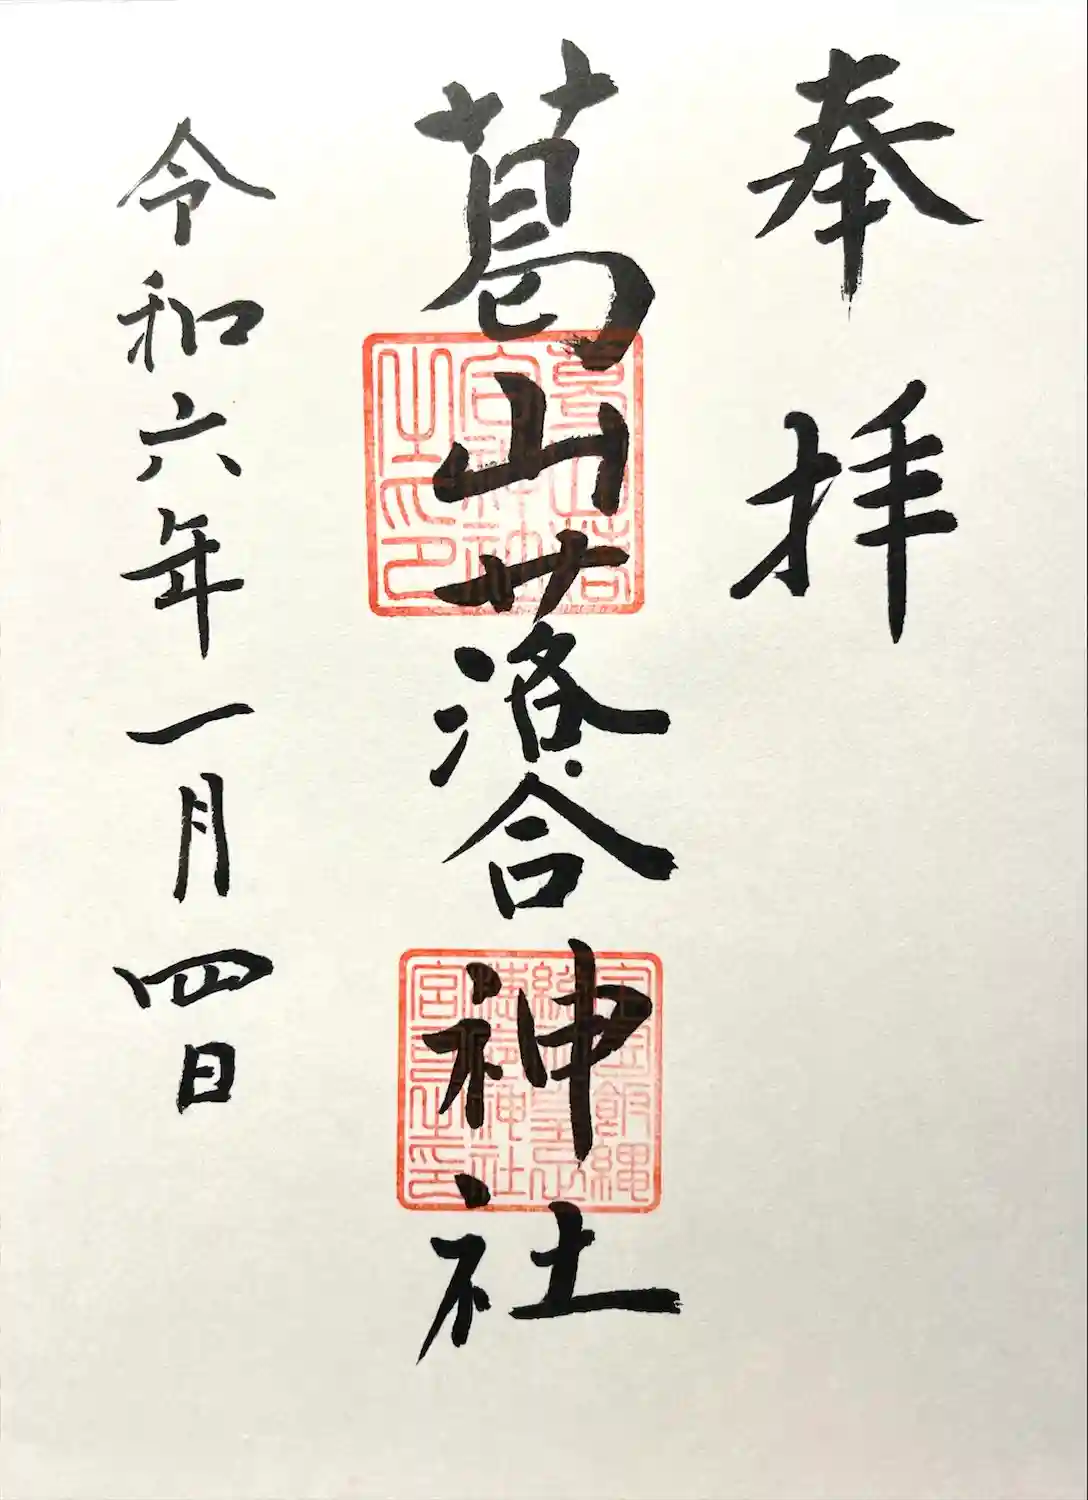 奉拝
葛山落合神社
令和六年一月四日